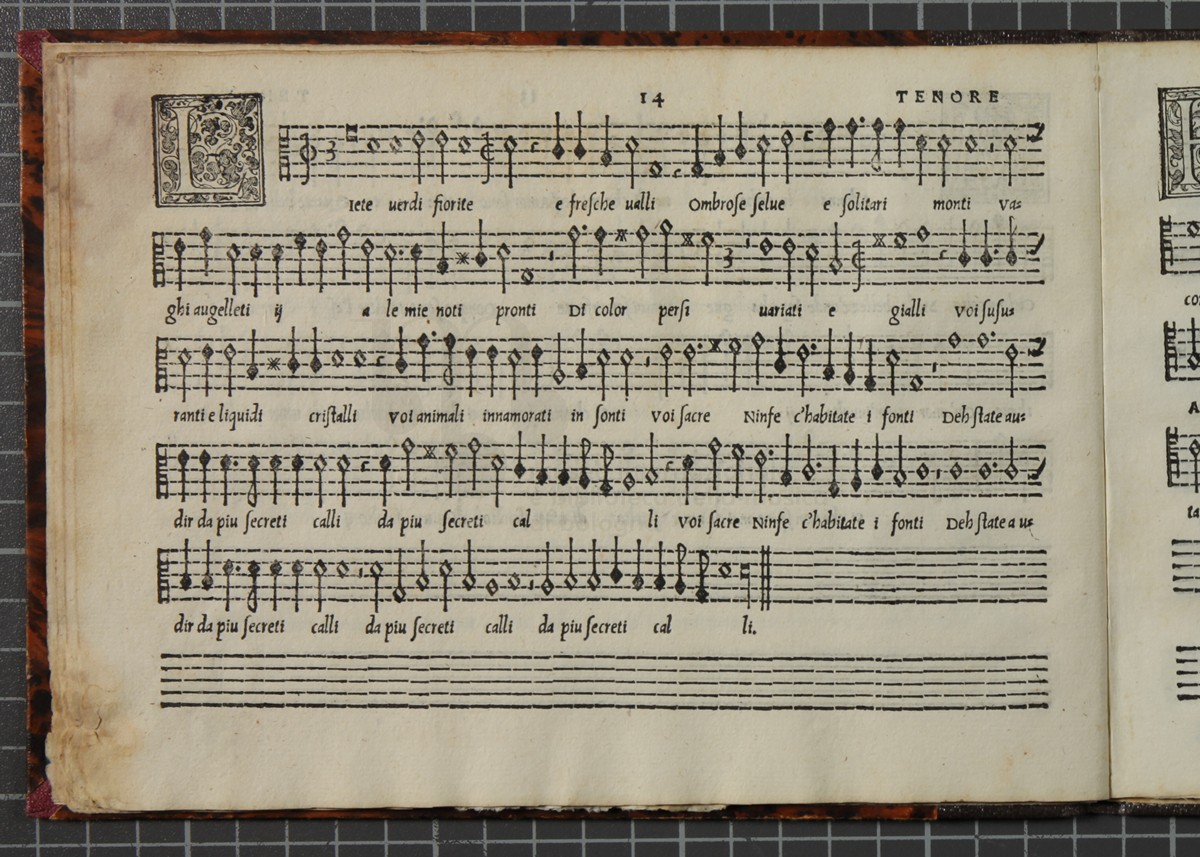 14 TENORE
LIete uerdi fiorite e fresche ualli Ombrose selue e solitari monti va=
ghi augelleti ij a le mie noti pronti Di color persi uariati e gialli voi susu=
ranti e liquidi cristalli voi animali innamorati in sonti voi sacre Ninfe c'habitate i fonti Deh state au=
dir da piu secreti calli da piu secreti cal li voi sacre Ninfe c'habitate i fonti Deh state a us
dir da piu secreti calli da piu secreti calli da piu secreti cal li.